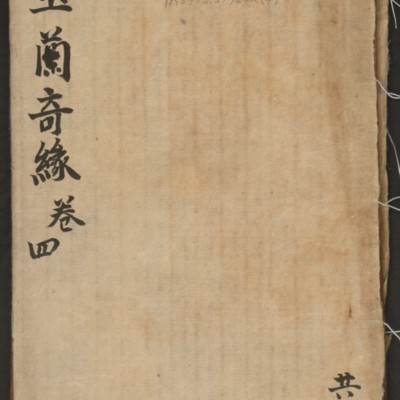 蘭奇緣
卷四
共